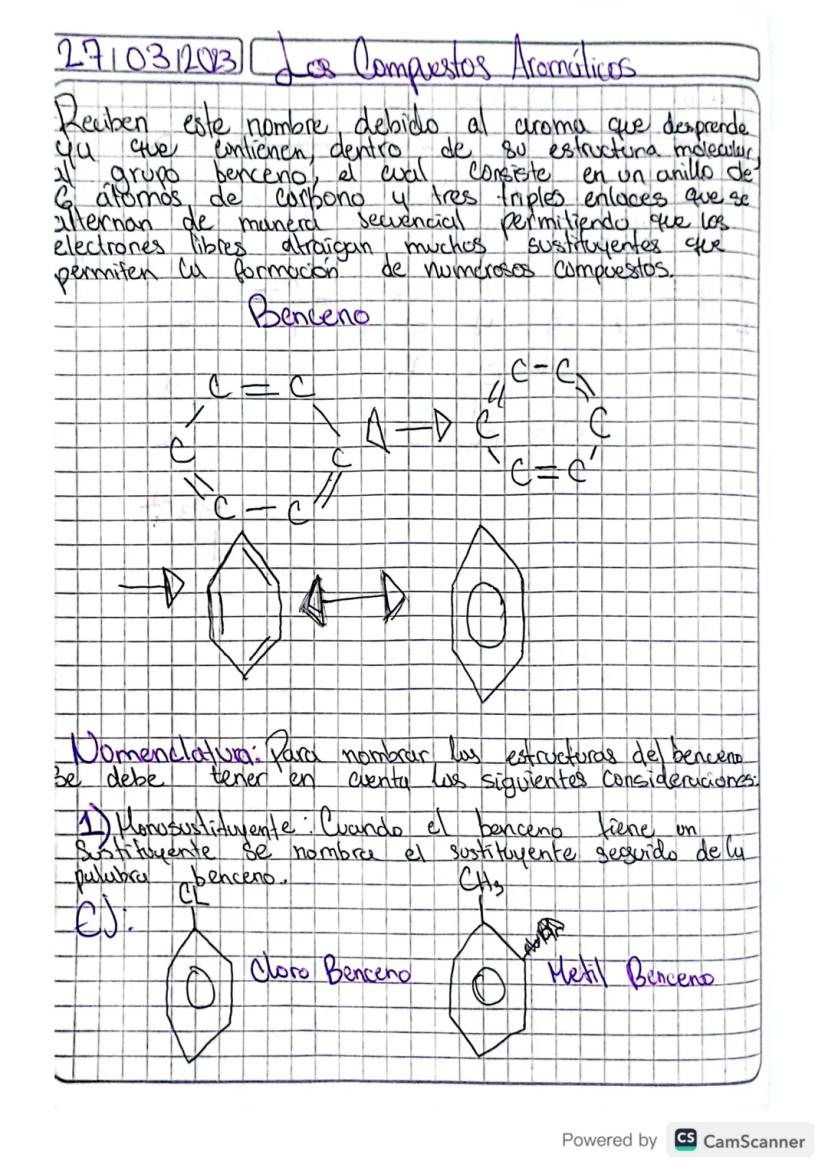 27/03/2023 Los Compuestos Aromáticos
Reciben este nombre debido al aroma que desprende
ya que contienen, dentro de su estructura molecular,
al grupo benceno, el cual consiste en un anillo de
6 átomos de carbono y tres triples enlaces que se
alternan de manera secuencial permitiendo que los
electrones libres atraigan muchos sustituyentes que
permiten la formación de numerosos compuestos.
Benceno
C = C
C - C
C
C
C
C
C - C
C = C
Nomenclatura: Para nombrar las estructuras del benceno
se debe tener en cuenta las siguientes consideraciones:
1) Monosustituyente: Cuando el benceno tiene un
Sustituyente se nombra el sustituyente seguido de la
palabra benceno.
CL
CH3
Ej:
Cloro Benceno
Metil Benceno
Powered by CS CamScanner